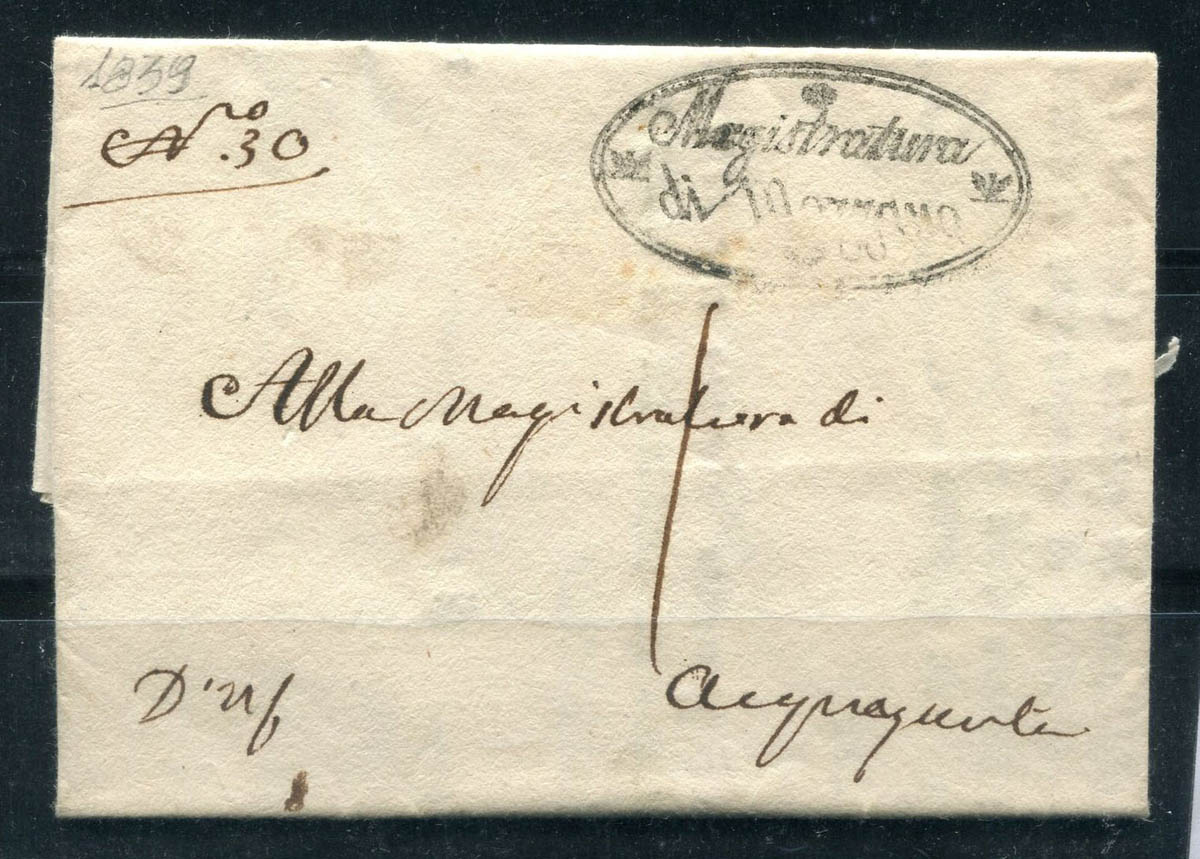 1839
N.º 30
Magistratura
di Mozzano
Alla Magistratura di
D'Uf
Acquasanta